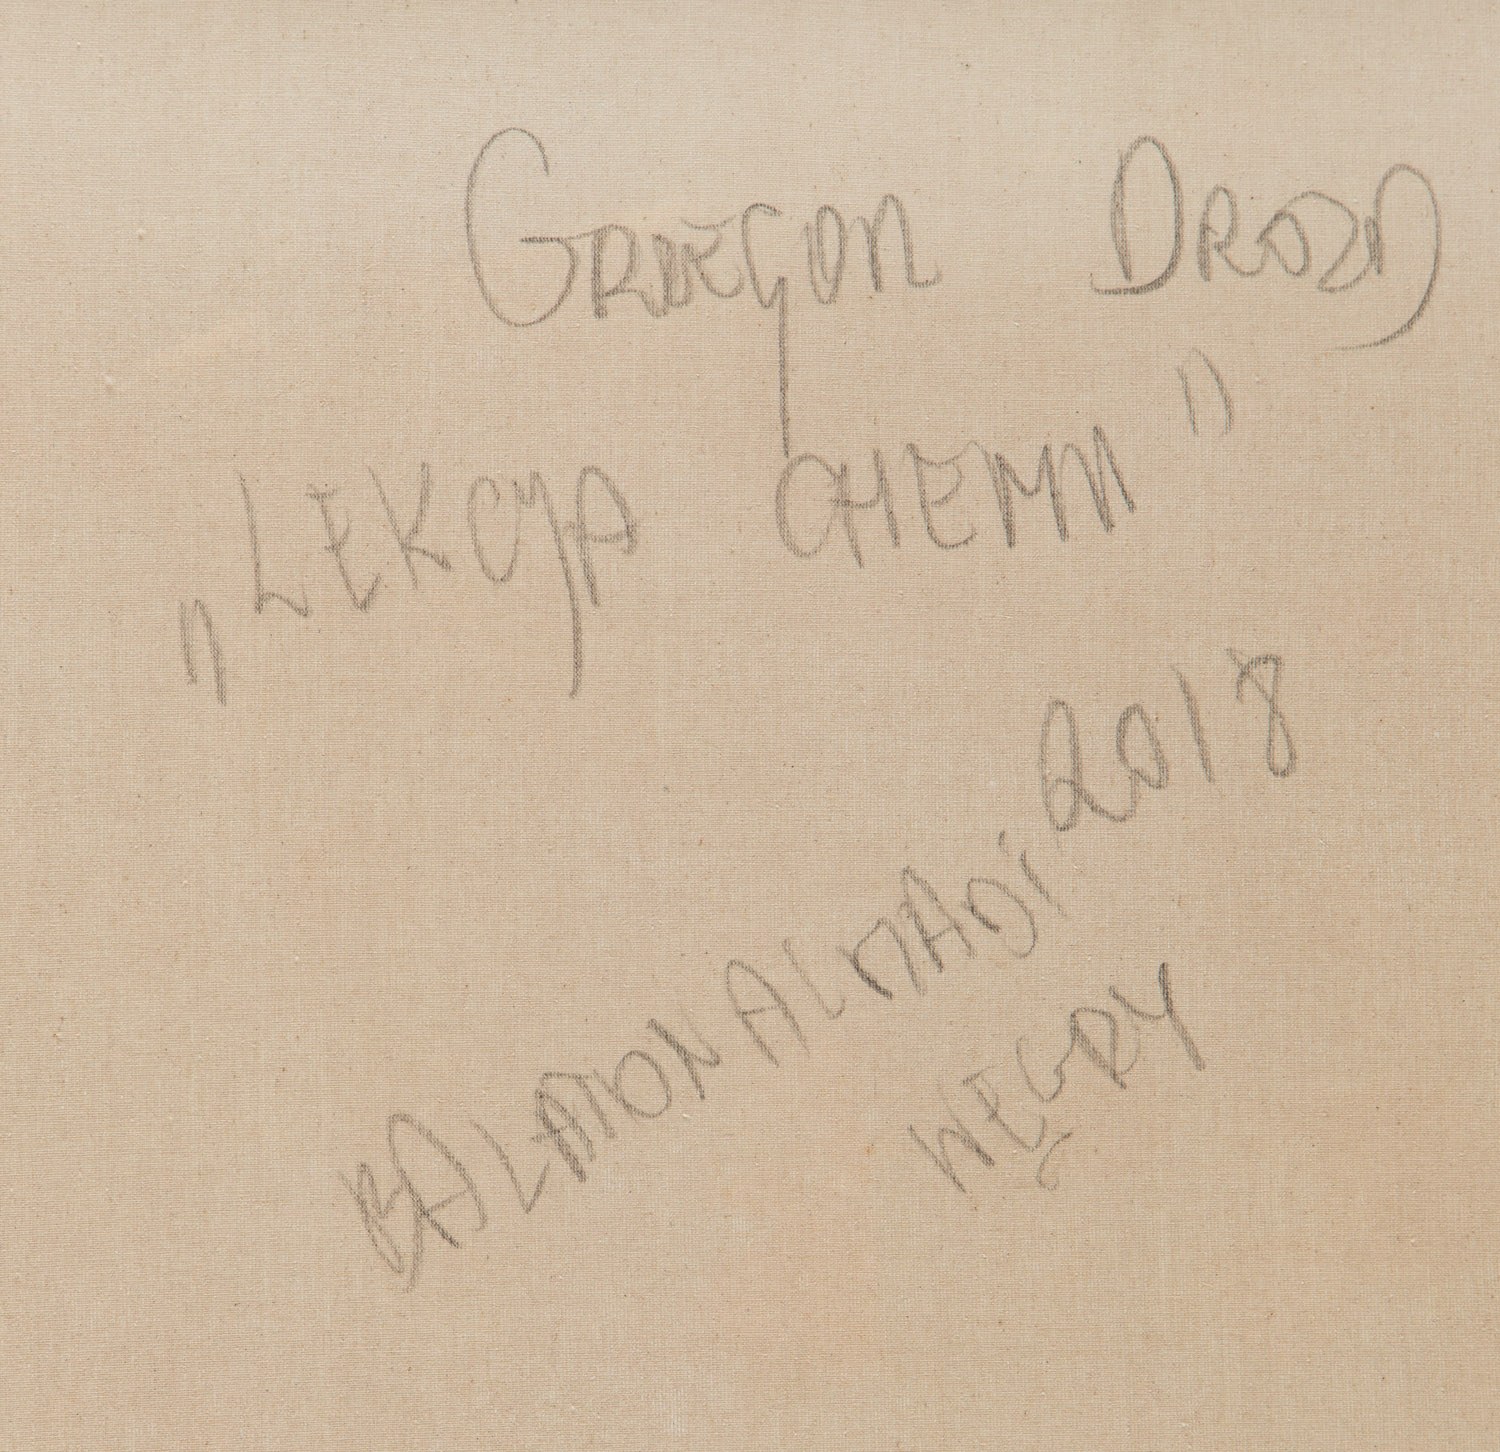 GRZEGORZ DROZD
„LEKCJA CHEMII”
BALATONALMADI 2018
WĘGRY